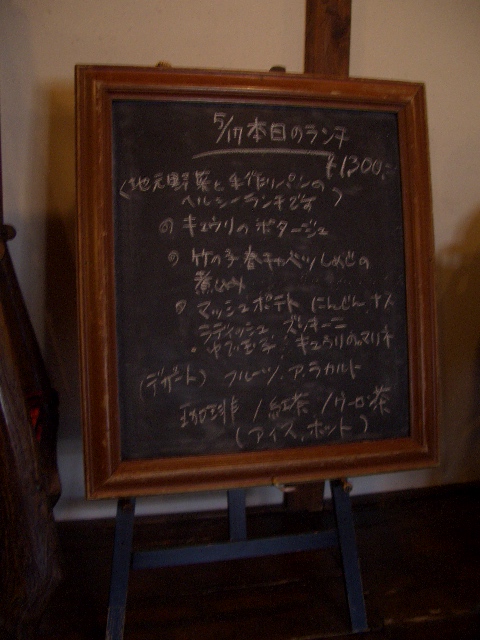 5/17 本日のランチ
¥1300.-
(地元野菜と手作りパンの
ヘルシーランチです)
キュウリのポタージュ
竹の子 春キャベツ しめじの
煮込み
マッシュポテト にんじん、ナス
ラディッシュ ズッキーニ
玉子、キュウリのマリネ
(デザート) フルーツ、アラカルト
珈琲 / 紅茶 / ウーロン茶
(アイス、ホット)